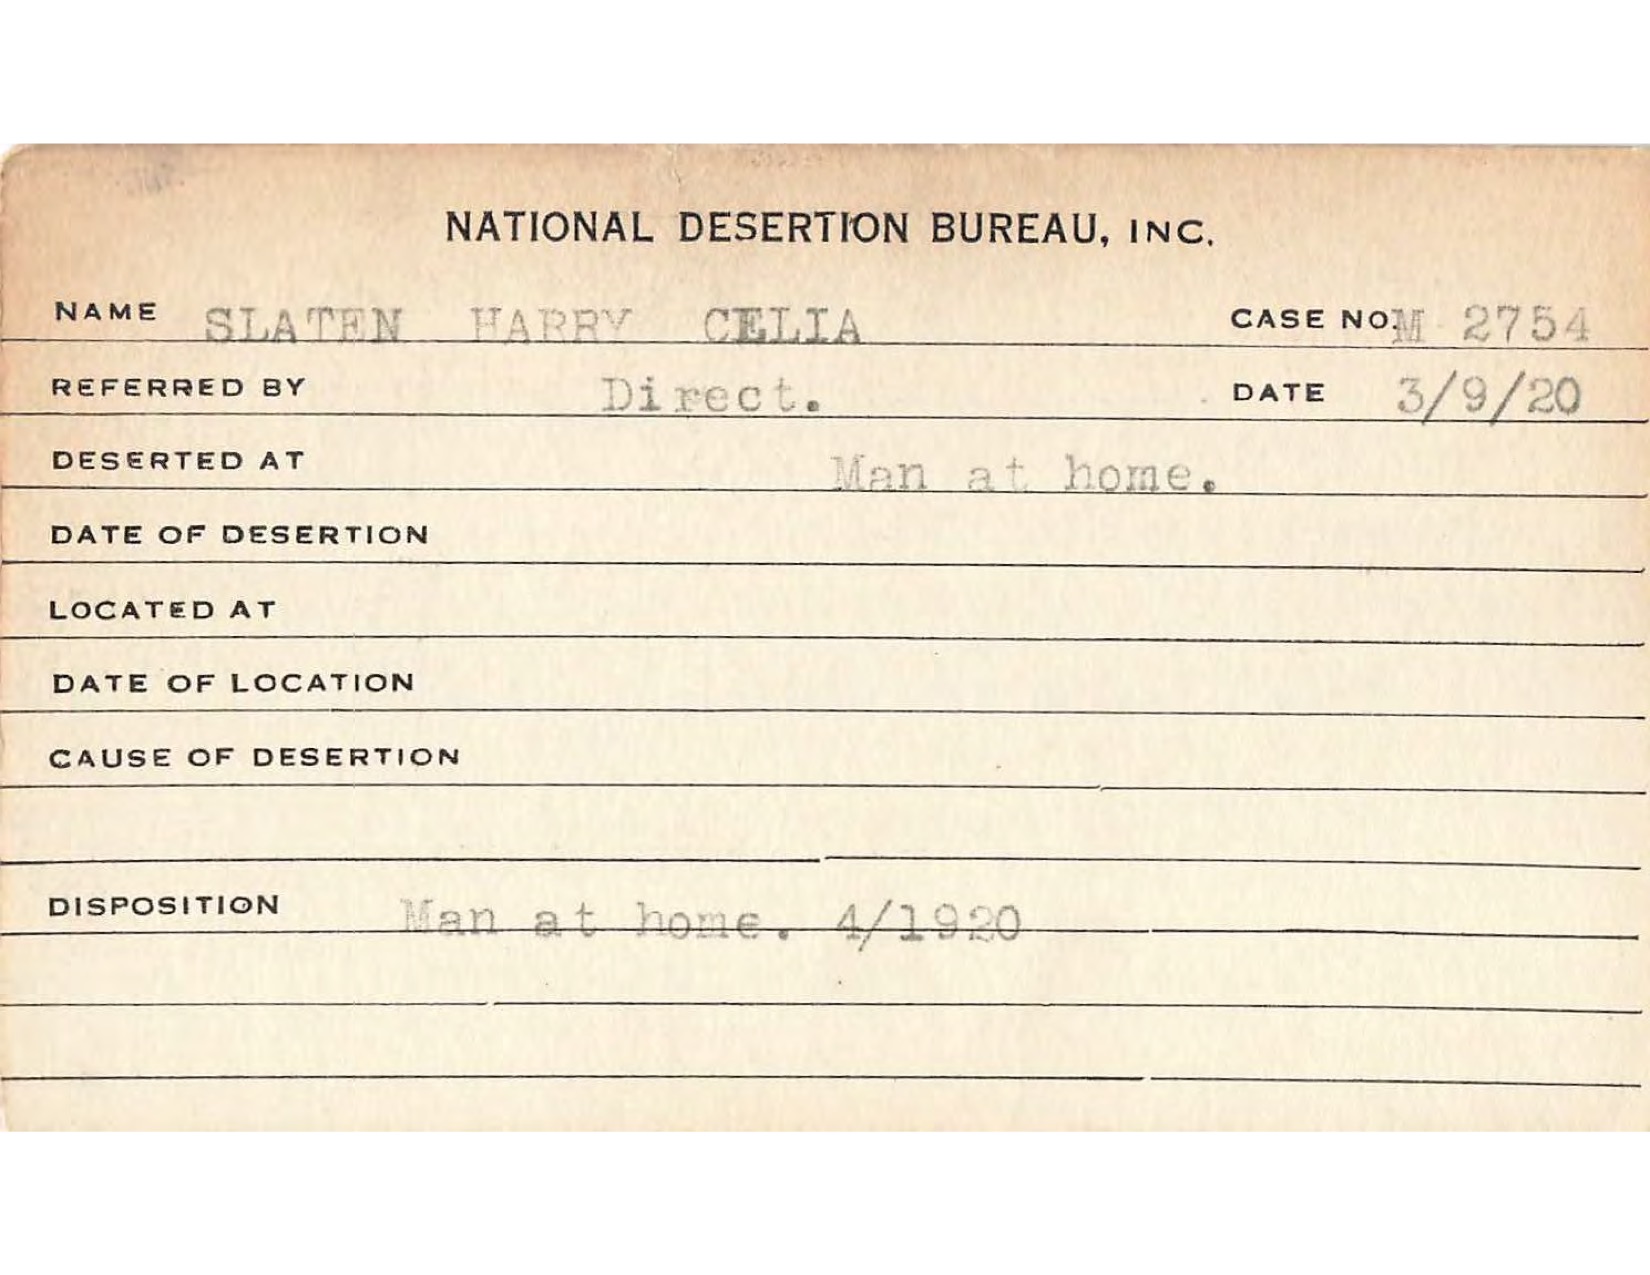 NATIONAL DESERTION BUREAU, INC.
NAME SLATEN HARRY CELIA CASE NO. M 2754
REFERRED BY Direct. DATE 3/9/20
DESERTED AT Man at home.
DATE OF DESERTION
LOCATED AT
DATE OF LOCATION
CAUSE OF DESERTION
DISPOSITION Man at home. 4/1920